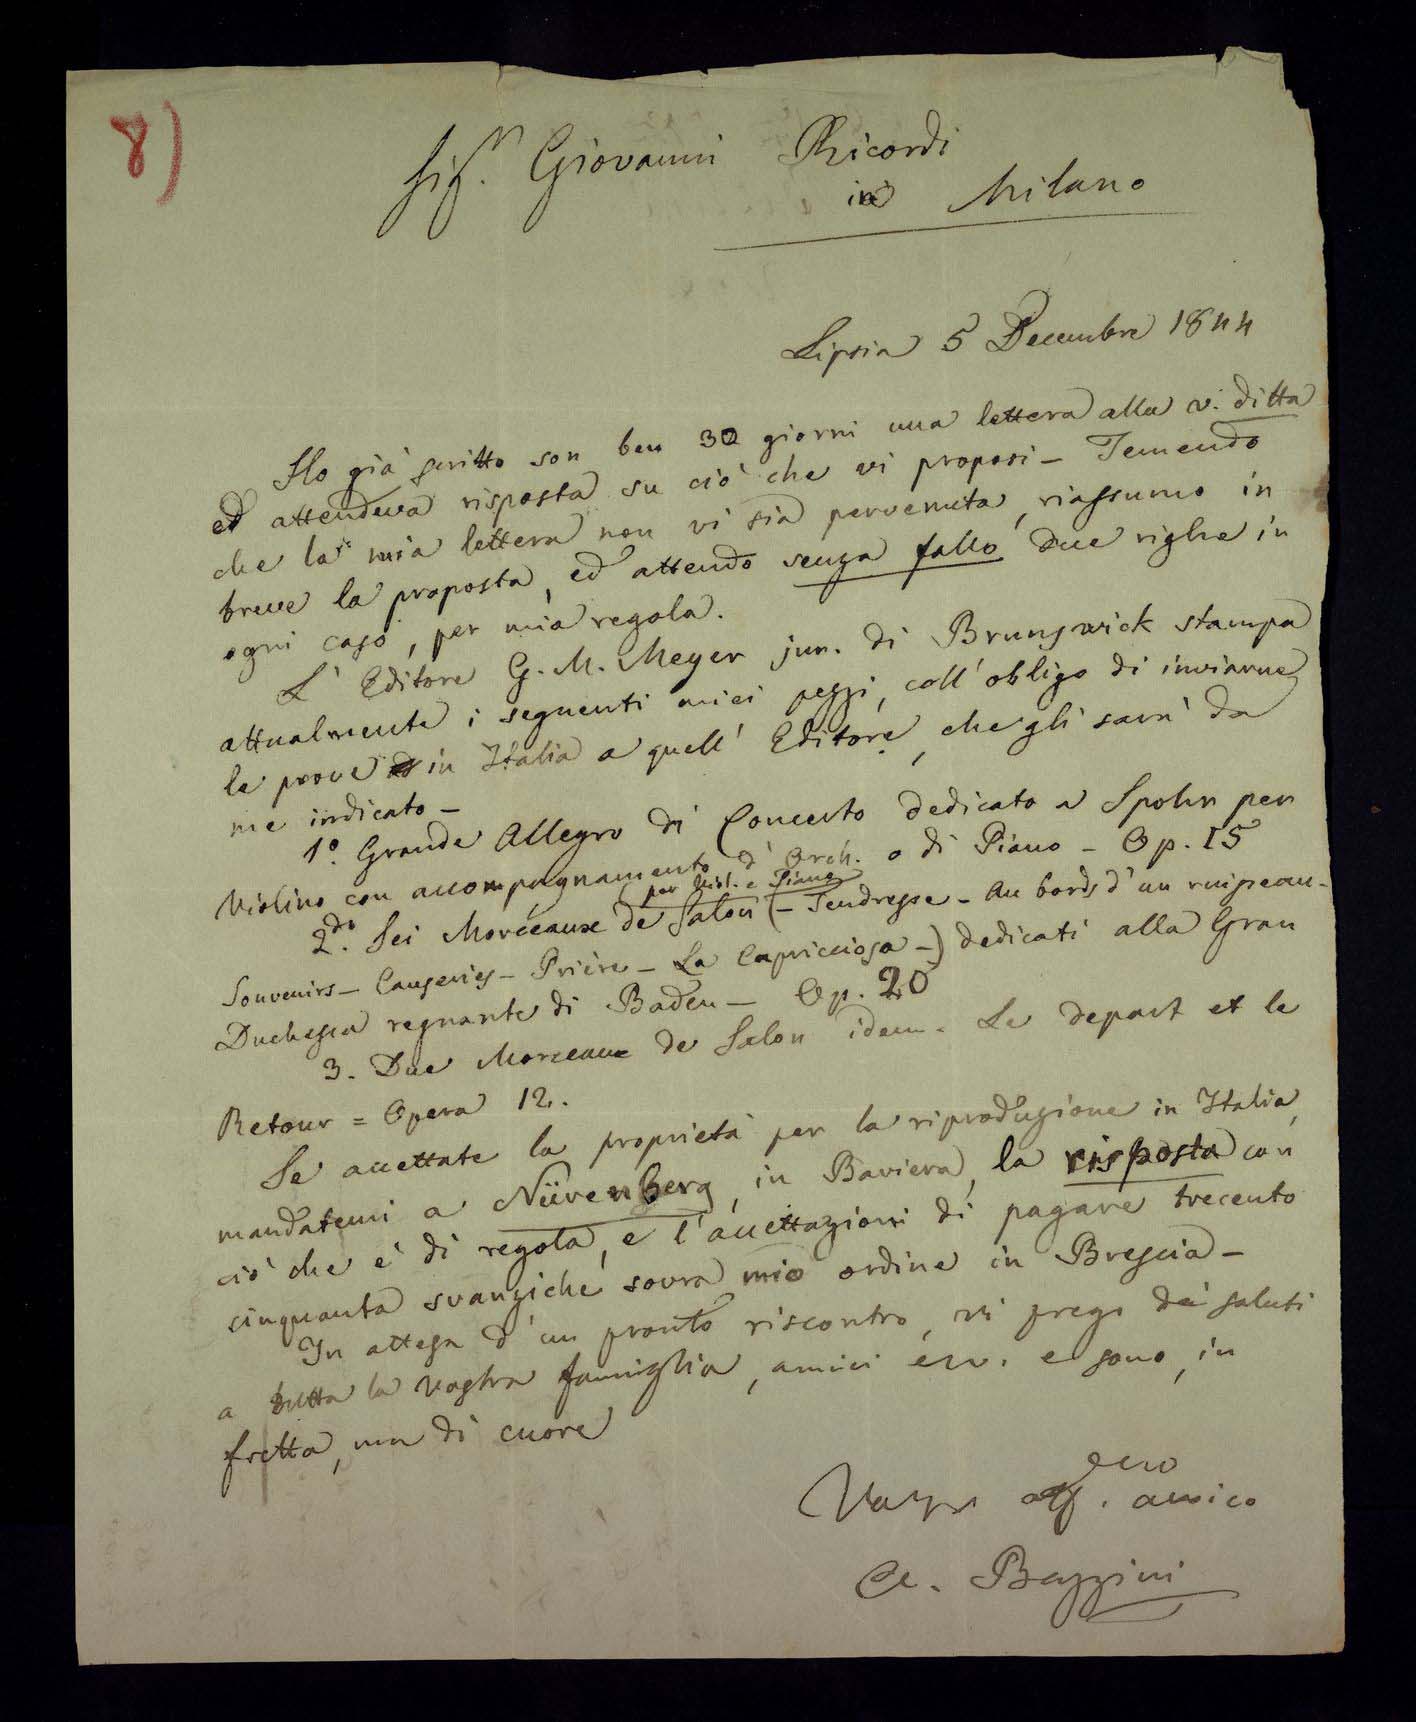 8)
Sig.r Giovanni Ricordi
in Milano
Lipsia 5 Decembre 1844
Ho già scritto son ben 30 giorni una lettera alla v. ditta
ed attendeva risposta su ciò che vi proposi – Temendo
che la mia lettera non vi sia pervenuta, riassumo in
breve la proposta, ed attendo senza fallo due righe in
ogni caso, per mia regola.
L'Editore G. M. Meyer jun. di Brunswick stampa
attualmente i seguenti miei pezzi, coll'obligo di inviarne
le prove in Italia a quell'Editore, che gli sarà da
me indicato –
1.º Grande Allegro di Concerto dedicato a Spohr per
Violino con accompagnamento d'Orch. o di Piano – Op. 15
per Viol. e Piano
2.do Sei Morceaux de Salon (– Tendresse – Au bords d'un ruisseau –
Souvenirs – Causeries – Prière – La Capricciosa –) dedicati alla Gran
Duchessa regnante di Baden – Op. 20
3. Due Morceaux de Salon idem. Le depart et le
Retour = Opera 12.
Se accettate la proprietà per la riproduzione in Italia,
mandatemi a Nürenberg, in Baviera, la risposta con
ciò che è di regola, e l'accettazioni di pagare trecento
cinquanta svanziche sovra mio ordine in Brescia –
In attesa d'un pronto riscontro, vi prego dei saluti
a tutta la vostra famiglia, amici ecc. e sono, in
fretta, ma di cuore
Vostro aff. amico
A. Bazzini